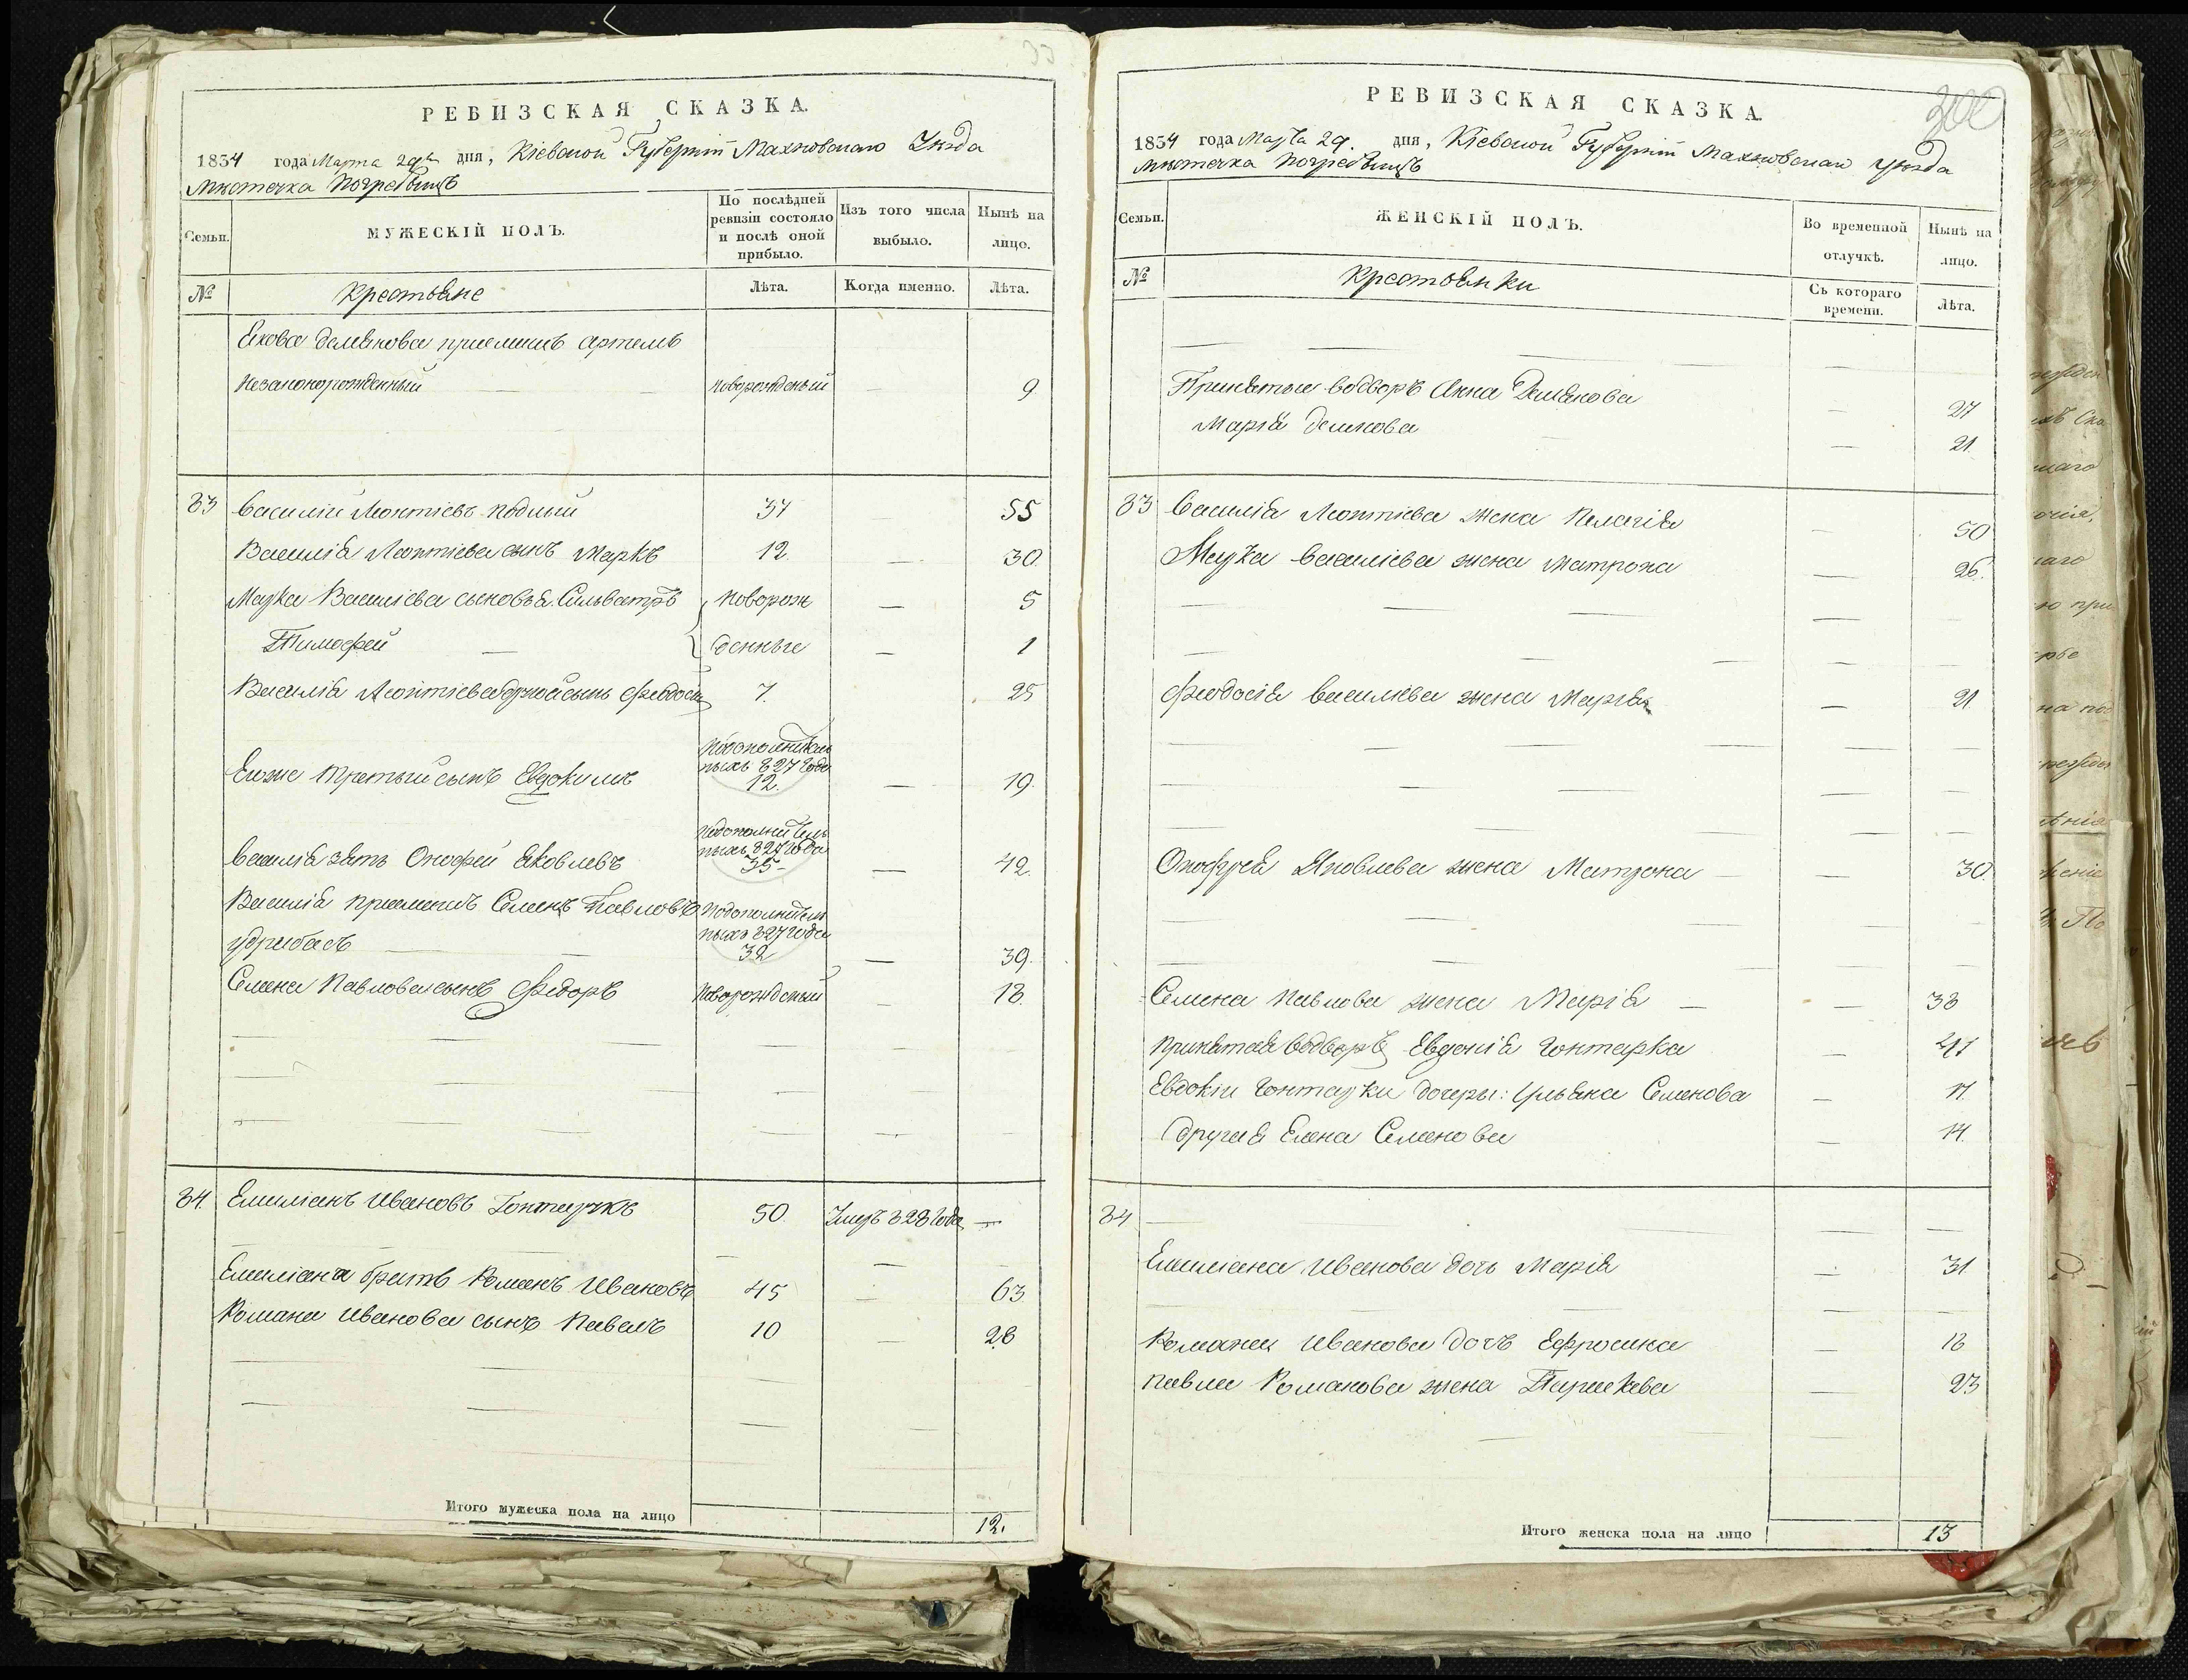 33
РЕВИЗСКАЯ СКАЗКА.
1834 года Марта 29го дня, Кіевской Губерніи Махновского Уѣзда
мѣстечка Погребищъ
Семьи.
МУЖЕСКІЙ ПОЛЪ.
По послѣдней ревизіи состояло и послѣ оной прибыло.
Изъ того числа выбыло.
Нынѣ на лицо.
№
Крестьяне
Лѣта.
Когда именно.
Лѣта.
Якова Демянова приемишъ Артемъ
незаконорожденный — новорожденый — 9
83 Василій Леонтіевъ 37 — 55
Василія Леонтіева сынъ Марко 12. — 30.
Марка Василіева сыновья Сильвестръ новорож — 5
Тимофей — денные — 1
Василія Леонтіева другой сынъ Феодосій 7. 25
Егоже третьій сынъ Евдокимъ
подополнитель
нымъ 827 года
12. — 19.
Василія зять Онофрей Яковлевъ
подополнитель
нымъ 827 года
35 — 42.
Василія приемишъ Семенъ Павловъ
подополнитель
нымъ 827 года
32 — 39.
Семена Павлова сынъ Федоръ новорожденый — 18.
84. Емиліанъ Ивановъ Гонтарукъ 50. Умеръ 828 года —
Емиліана братъ Романъ Ивановъ 45 — 63.
Романа Иванова сынъ Павелъ 10 — 28
Итого мужеска пола на лицо 12.
300
РЕВИЗСКАЯ СКАЗКА.
1834 года Марта 29. дня, Кіевской Губерніи Махновского уѣзда
мѣстечка Погребищъ
Семьи.
ЖЕНСКІЙ ПОЛЪ.
Во временной отлучкѣ.
Нынѣ на лицо.
№
Крестьянки
Съ котораго времени.
Лѣта.
Принятые водворъ Анна Демянова — 27
Марія Демянова — 21.
83 Василія Леонтіева жена Пелагія — 50
Марка Василіева жена Матрона — 26.
Феодосія Василіева жена Марія — 21
Онофрея Яковлева жена Матрона — 30.
Семена Павлова жена Марія — 38
Принятая водворъ Евдокія Гонтарка — 41
Евдокіи Гонтарки дочеры: Ульяна Семенова — 17.
другая Елена Семенова — 14.
84 —
Емиліана Иванова дочь Марія — 31
Романа Иванова дочь Ефросина — 18
Павла Романова жена Параскева — 23
Итого женска пола на лицо 13